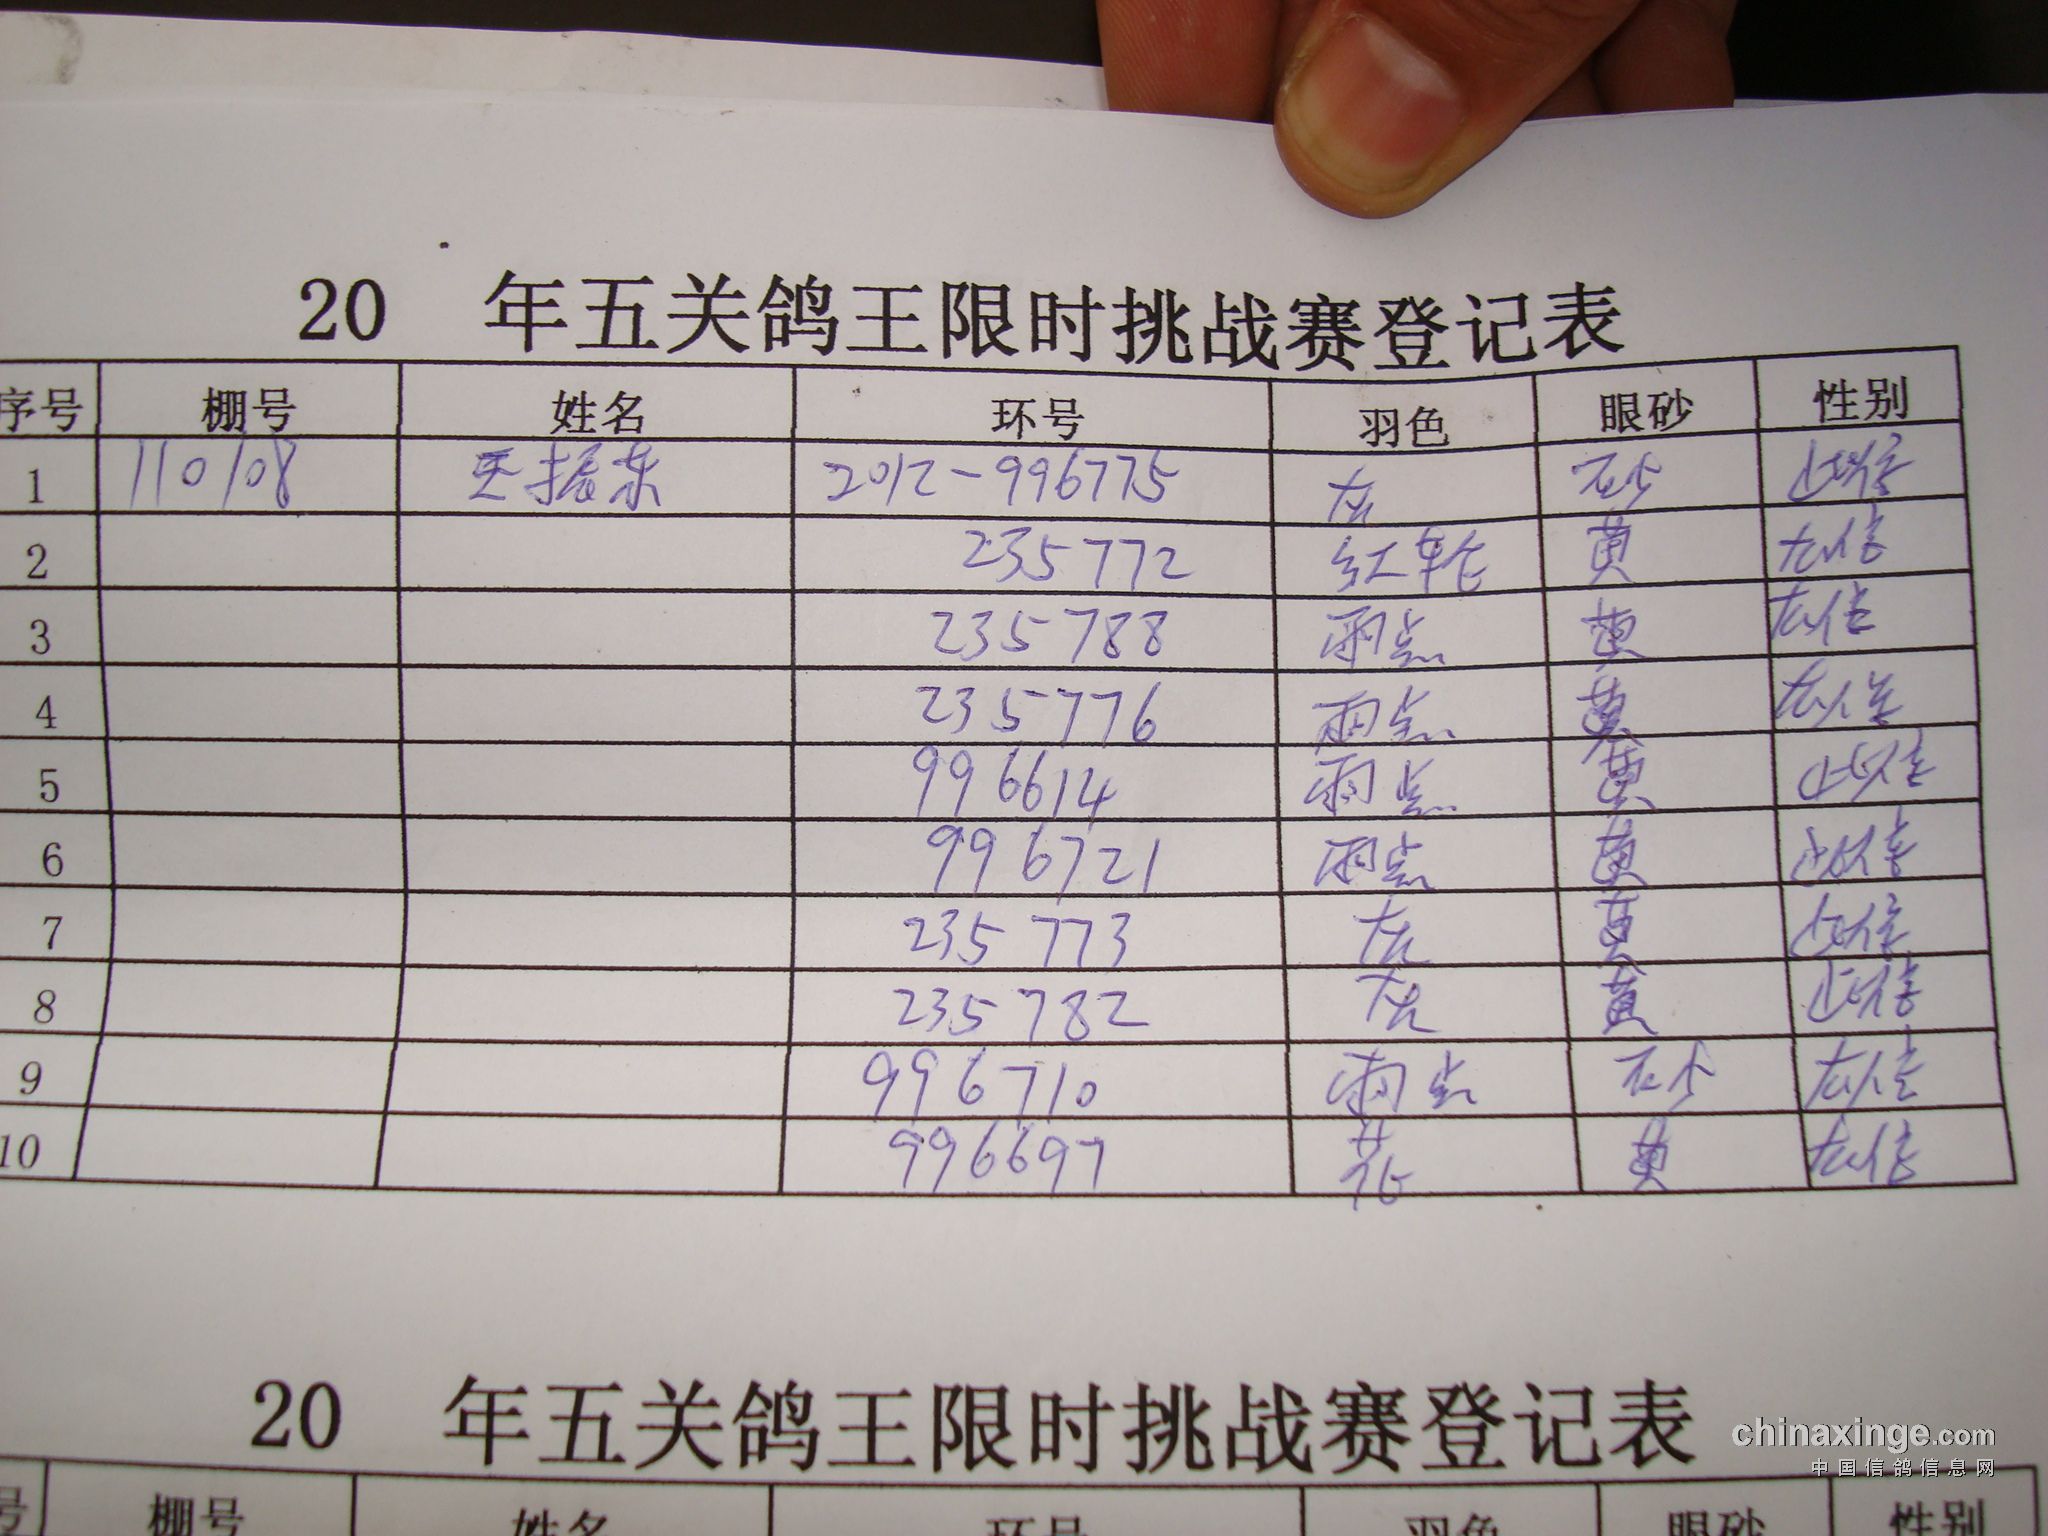 20 年五关鸽王限时挑战赛登记表
序号 棚号 姓名 环号 羽色 眼砂 性别
1 110108 王振东 2012-996775 灰 石少
2 235772 红轮 黄
3 235788 雨点 黄
4 235776 雨点 黄
5 996614 雨点 黄
6 996721 雨点 黄
7 235773 灰 黄
8 235782 灰 黄
9 996710 雨点 石少
10 996697 花 黄
20 年五关鸽王限时挑战赛登记表
号 棚号 姓名 环号 羽色 眼砂 性别
chinaxinge.com
中国信鸽信息网